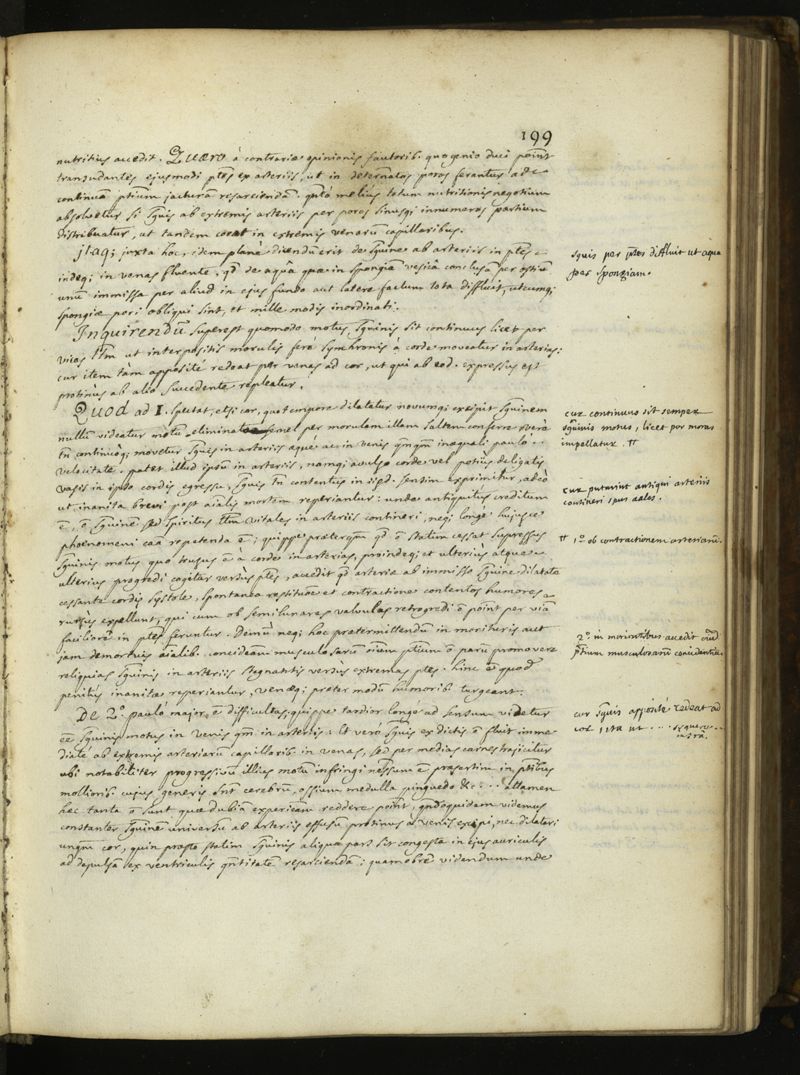 199
nutritius accedit. Quæro à contrariæ opinionis fautorib. quo genio duci poīnt
transudantes ejusmodi ptes ex arteriis, ut in determatos poros ferantur ad
continuā ptium jacturā resarciendā. qnto meliùs totum nutritionis negotium
absolvetur si sguis ab extremis arteriis per poros sinusqi innumeros partium
distribuatur, ut tandem coeat in extremis venarū capillaribus.
jtaqi juxta hoc, idem planè dicendū erit de sguine ab arteriis in ptes
indeqi in venas fluente, qd de aquâ quæ in spongiæ vesicâ conclusæ per ostiū
unū immissa per aliud in ejus fundo aut latere factum tota diffluit, utcumqi
spongiæ pori obliqui sint, et mille modis inordinati.
Inquirendū superest quomodo motus sguinis sit continuus licet per
vices tm ut interpositis morulis ferè synchronis à corde moveatur in arterias;
cur item tàm appositè redeat per venas ad cor, ut qui ab eod. expressus est
protinùs ab alio succedente repleatur.
Quod ad 1. spectat, etsi cor, quo tempore dilatatur novumqi excipit sguinem
nullū videatur motū eliminato semel per morulam illam saltem conferre verè
tn continuòqi movetur sguis in arteriis æquè ac in venis qmqm inæquali paulo
velocitate. patet illud ipsū in arteriis, namqi avulso corde vel potiùs deligatis
vasis in ipso cordis egressu, sguis tn contentus in iisd. sensim exprimitur, adeò
ut inanitæ brevi post aīalis mortem reperiantur: unde antiquitùs creditum
ē, ō sguinē sed spiritus tm vitales in arteriis contineri, neqi longè hujusce
phœnomeni caā repetenda ē; quippe præterqm qd ō statim cessat suppressus
sguinis motus quo trusus ē à corde in arterias, proindeqi et ulterius atque
ulterius progredi cogitur versùs ptes, accedit qd arteriæ ab immisso sguine dilatatæ
cessante cordis systole, spontanea restitutōe et contractione contentos humores
rursùs expellunt, qui cum ob semilunares valvulas retrogredi ō poīnt per viā
faciliorē in ptes feruntur. Demū neqi hoc prætermittendū in morituris aut
jam demortuis aīalib. concideām musculosarū oīum ptium ō parū promovere
reliquias sguinis in arteriis stagnantis versùs extremas ptes. hinc ē quod
penitùs inanitæ reperiantur, venæqi præter modū humorib. turgeant.
De 2.º paulò major ē difficultas; quippe tardior longè ad sensum videtur
ēē sguinis motus in venis qm in arteriis: et verò sguis ex dictis ō fluit imme
diatè ab extremis arteriarū capillarib. in venas, sed per medias carnes trajicitur
ubi notabiliter progressivū illius motū infringi necssum ē præsertim in ptibus
mollioribus cujus generis snt cerebrū, ossium medulla pinguedo &c... attamen
hæc tanta ō sunt quæ dubiā experieām reddere poīnt, qndoquidem videmus
constanter sguinē universū ab arteriis effusū protinùs à venis excipi, nec dilatari
unqm cor, quin præsto statim sguinis aliqua pars sit congesta in ejus auriculis
ad depulsā ex ventriculis qntitatē resarciendā; quamobrē videndum unde
sguis per ptes diffluit ut aqua
per spongiam.
cur continuus sit semper
sguinis motus, licet per moras
impellatur. ¶
cur putarint antiqui arteriis
contineri spūs
¶ 1.º ob contractionem arteriarū.
2.º in morientibus accedit
ptium musculosarū concidentia.
cur sguis appositè redeat ad
cor ita ut ....
infrà.